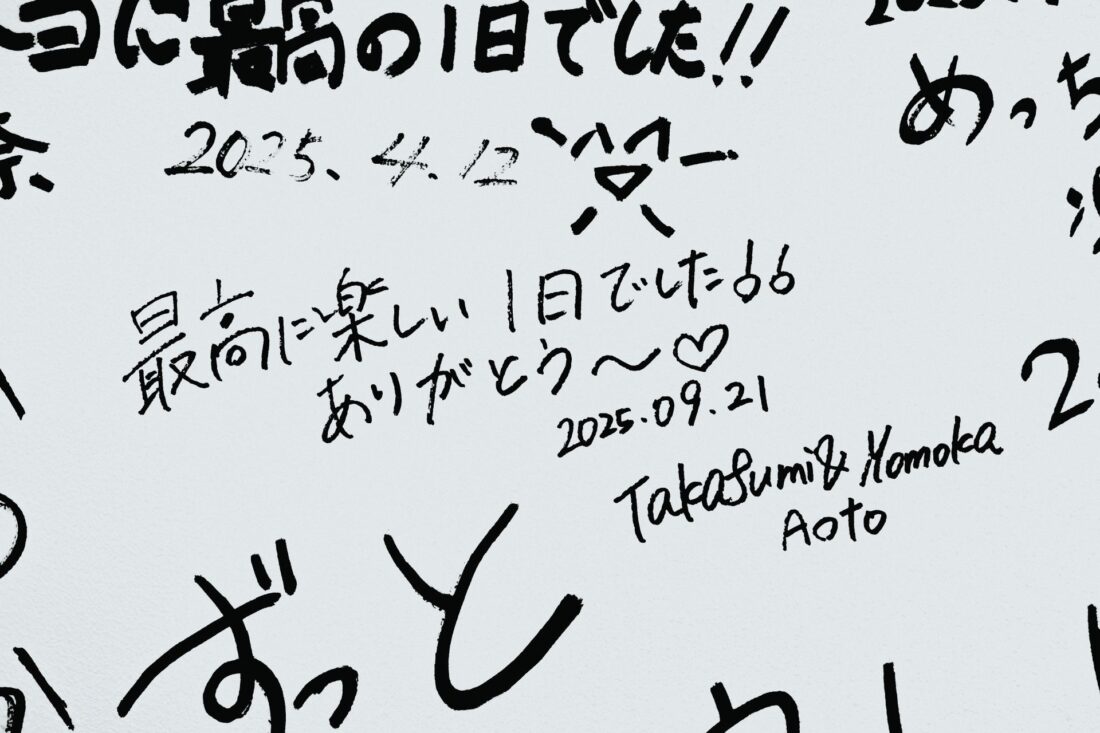 に最高の1日でした!!
2025. 4. 12
めっち
最高に楽しい1日でした!!
ありがとう〜♡
2025.09.21
Takafumi & Momoka
Aoto
ずっと